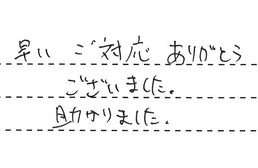 早い ご対応 ありがとう
ございました。
助かりました.